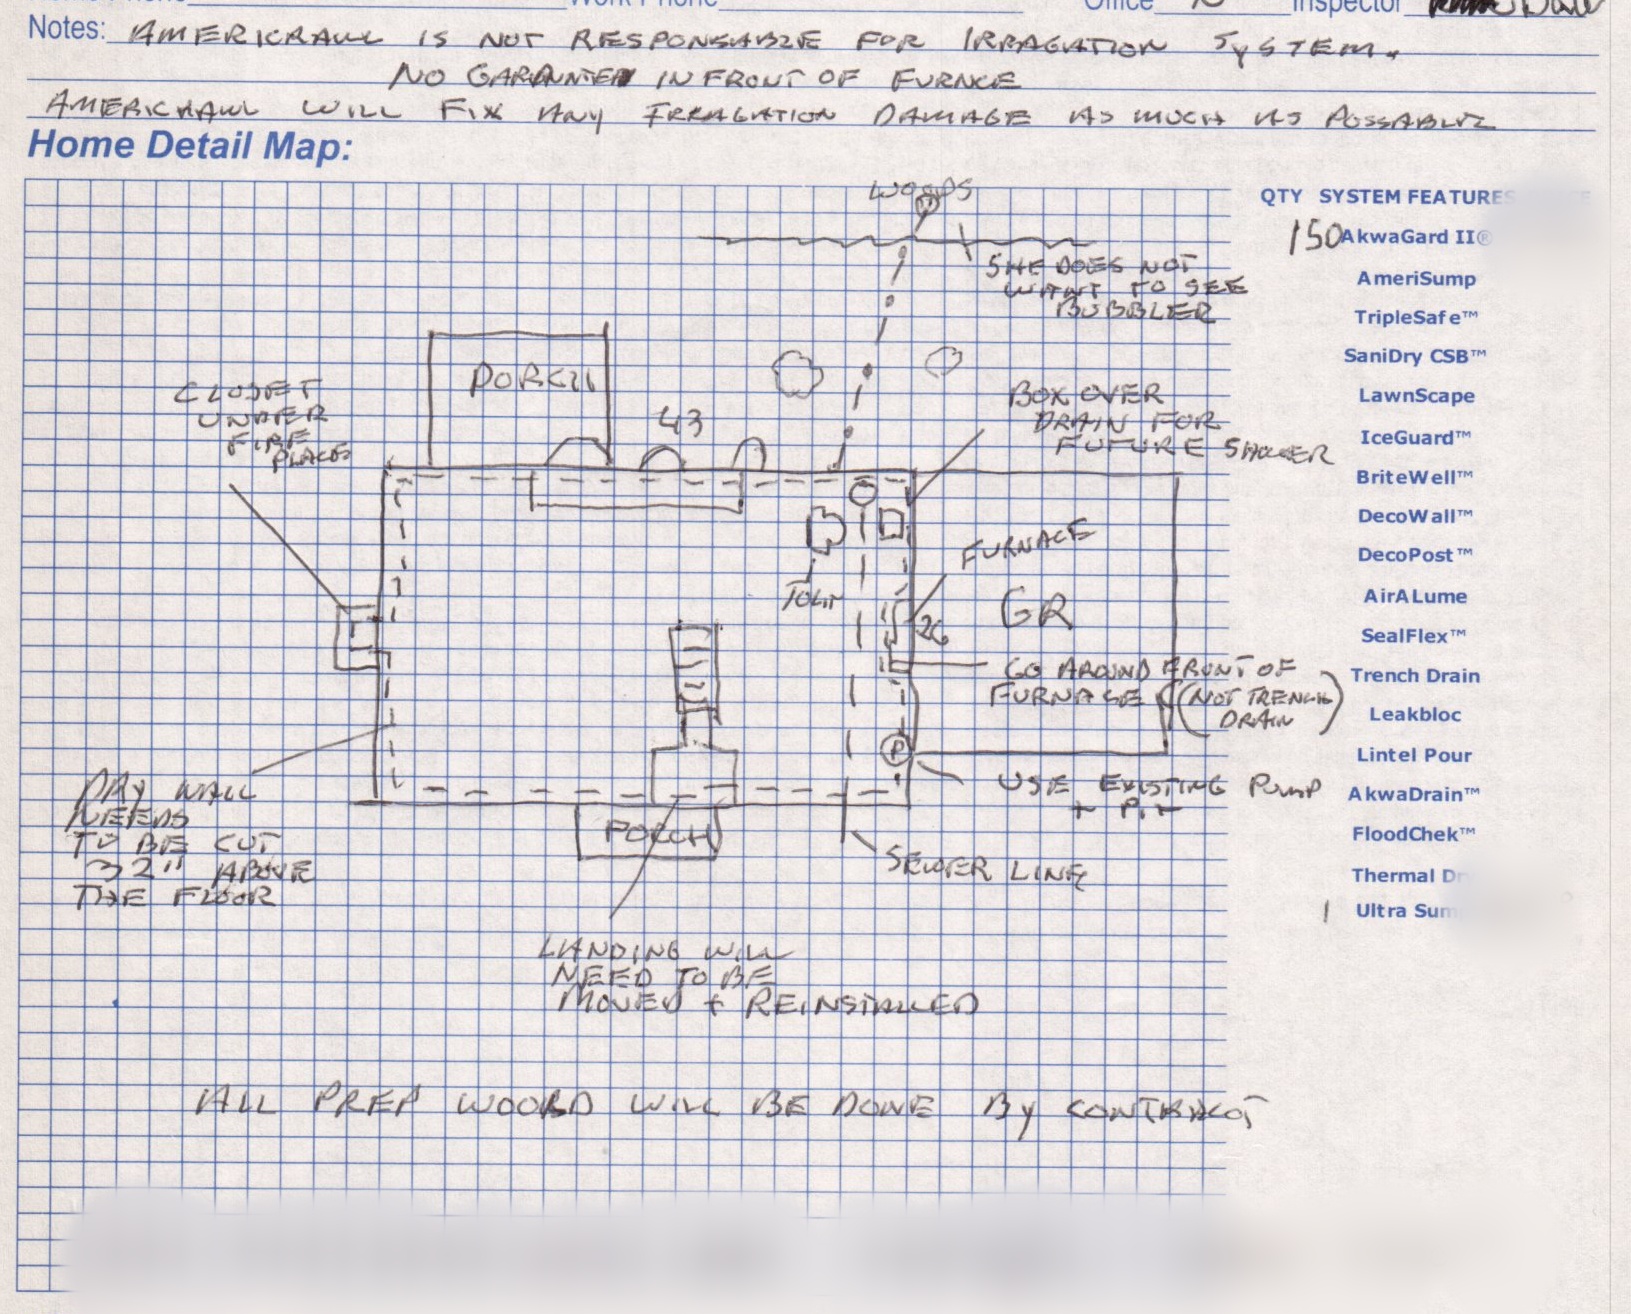 Work Phone
Office
Inspector
Notes: AMERICRAWL IS NOT RESPONSABLE FOR IRRAGATION SYSTEM.
NO GARANTEE IN FRONT OF FURNCE
AMERICRAWL WILL FIX ANY IRRAGATION DAMAGE AS MUCH AS POSSABLE
Home Detail Map:
WOODS
QTY SYSTEM FEATURES
150 AkwaGard II®
SHE DOES NOT
WANT TO SEE
BUBBLER
AmeriSump
TripleSafe™
SaniDry CSB™
PORCH
CLOSET
UNDER
FIRE
PLACES
43
BOX OVER
DRAIN FOR
FUTURE SHOWER
LawnScape
IceGuard™
BriteWell™
DecoWall™
DecoPost™
FURNACE
AirALume
26
GR
SealFlex™
GO AROUND FRONT OF
FURNACE (NOT TRENCH
DRAIN)
Trench Drain
Leakbloc
Lintel Pour
P
USE EXISTING PUMP
+ PIT
AkwaDrain™
DRY WALL
NEEDS
TO BE CUT
32" ABOVE
THE FLOOR
PORCH
FloodChek™
SEWER LINE
Thermal
1 Ultra
LANDING WILL
NEED TO BE
MOVED + REINSTALLED
ALL PREP WOORD WILL BE DONE By CONTRACT